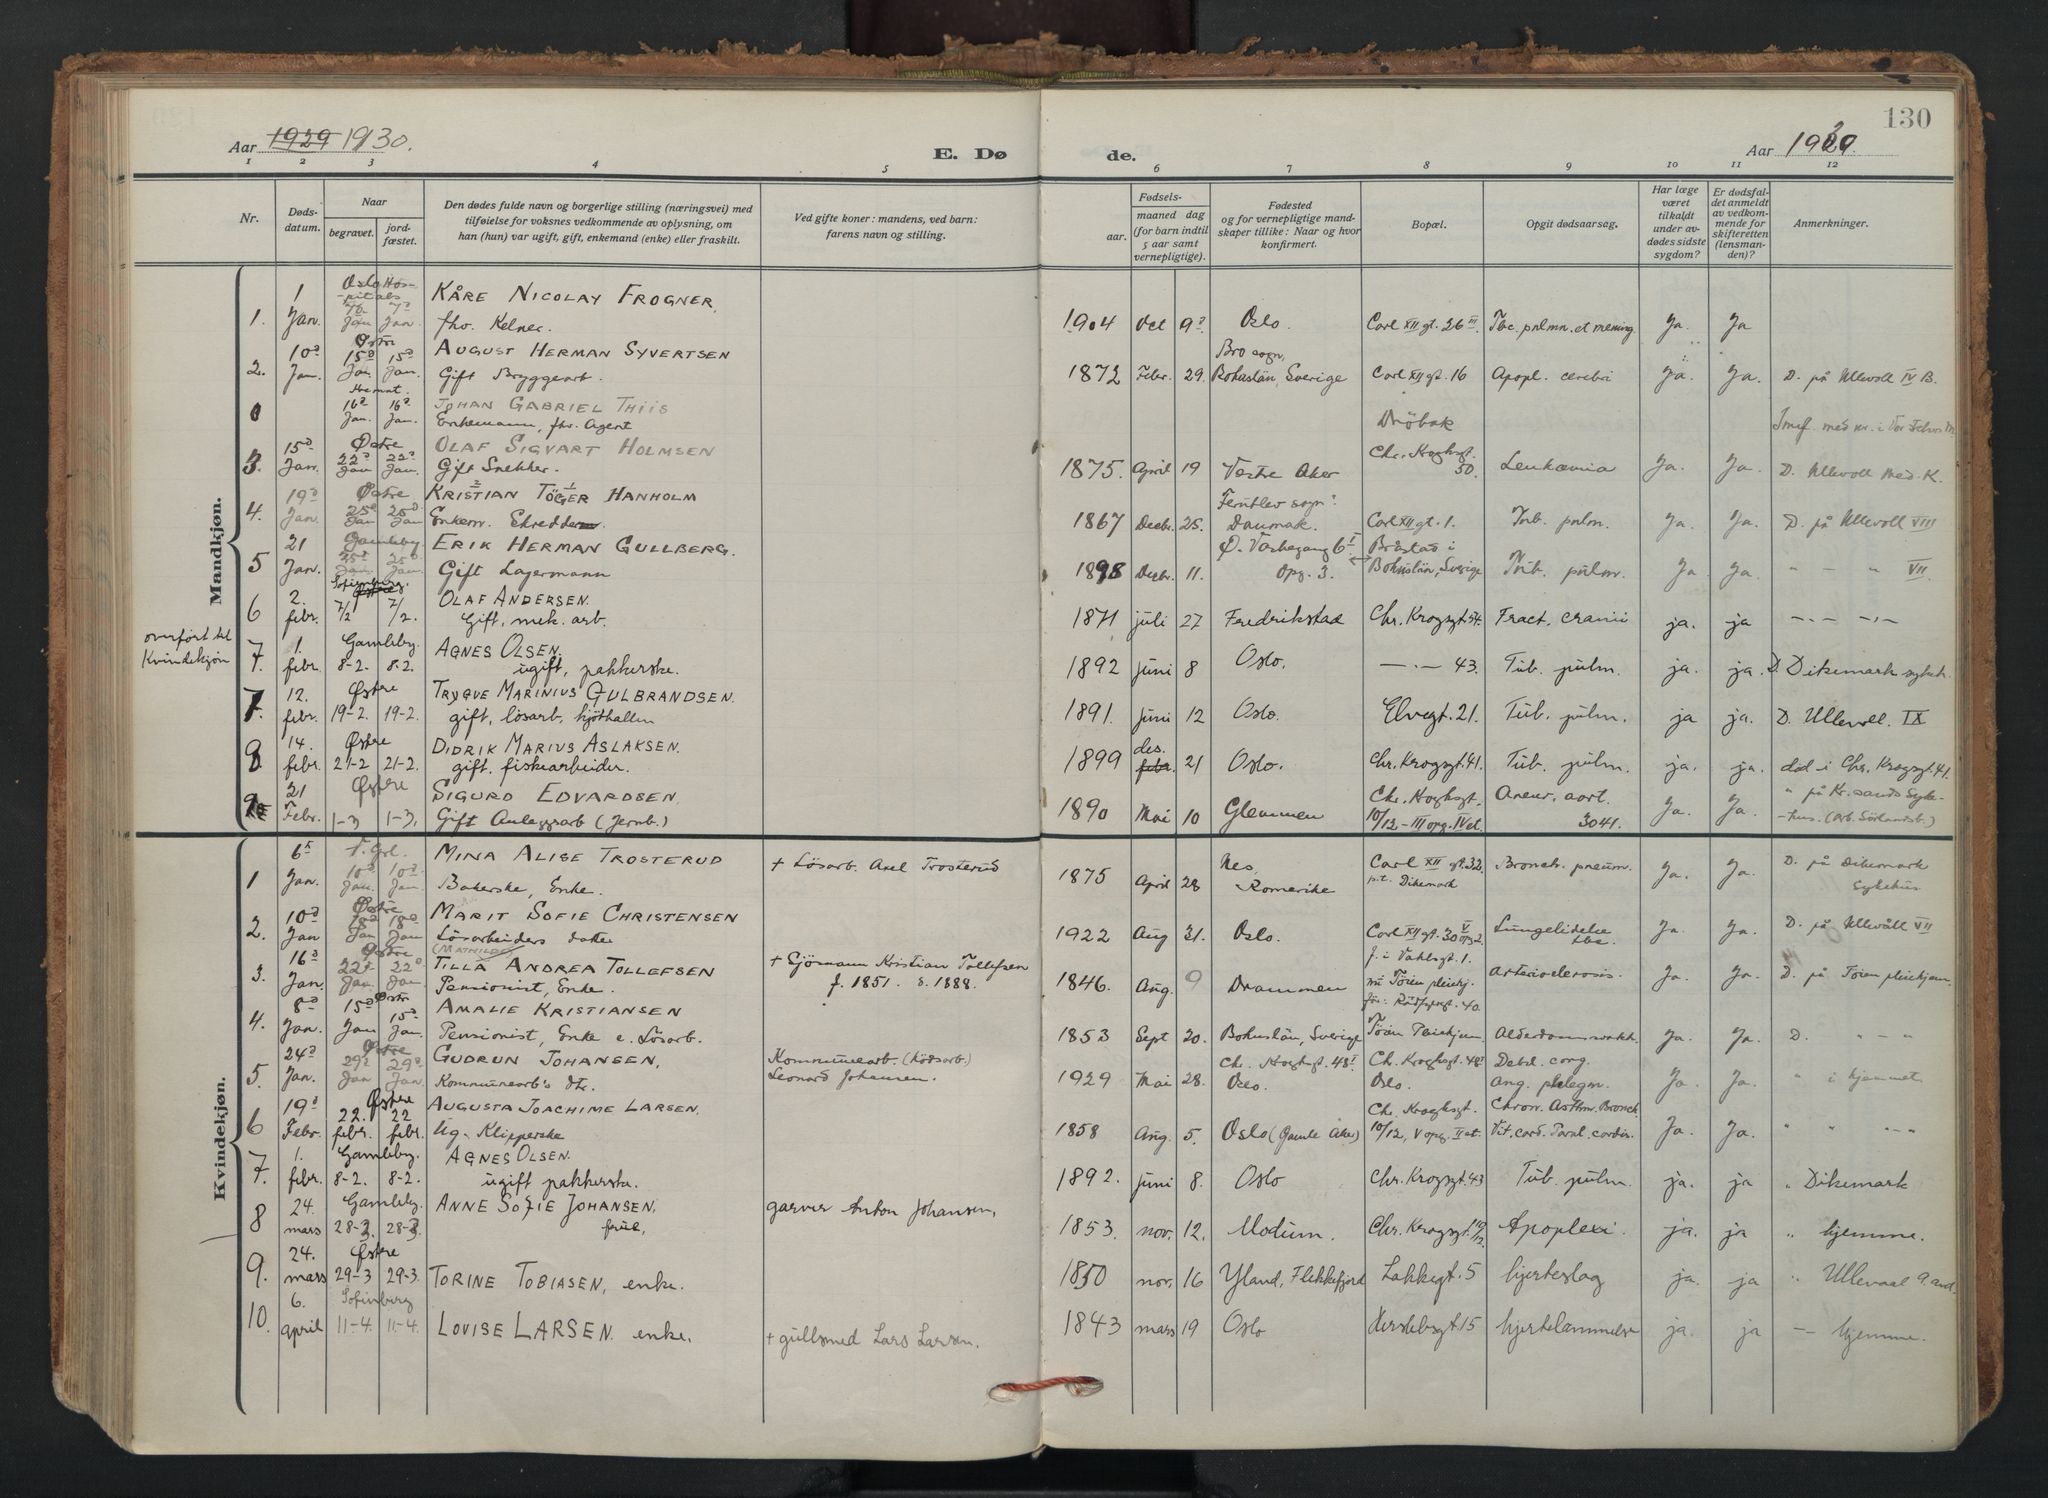 130
Aar 1929 1930.
E. Dø
de.
Aar 1930.
1 2 3 4 5 6 7 8 9 10 11 12
Nr.
Døds-
datum.
Naar
begravet.
jord-
fæstet.
Den dødes fulde navn og borgerlige stilling (næringsvei) med
tilføielse for voksnes vedkommende av oplysning, om
han (hun) var ugift, gift, enkemand (enke) eller fraskilt.
Ved gifte koner: mandens, ved barn:
farens navn og stilling.
Fødsels-
aar.
maaned
dag
(for barn indtil
5 aar samt
vernepligtige).
Fødested
og for vernepligtige mand-
skaper tillike: Naar og hvor
konfirmert.
Bopæl.
Opgit dødsaarsag.
Har læge
været
tilkaldt
under av-
dødes sidste
sygdom?
Er dødsfal-
det anmeldt
av vedkom-
mende for
skifteretten
(lensman-
den)?
Anmerkninger.
Mandkjøn.
1 Oslo Hos-
pitals KÅRE NICOLAY FROGNER,
1. Jan. Jan Jan. fhv. Kelner. 1904 Oct 9d Oslo. Carl XII gt. 26 III. Tbc. pulm. et mening. Ja. Ja
10d Østre AUGUST HERMAN SYVERTSEN Bro sogn,
2. Jan. 15d Jan. 15d Jan. Gift Bryggearb. 1872 Febr. 29. Bohuslän, Sverige Carl XII gt. 16 Apopl. cerebri Ja. Ja. D. på Ullevoll IV B.
0 16d Jan. 16d Jan. JOHAN GABRIEL THIIS
Enkemann, fhv. Agent Drøbak
15d Østre OLAF SIGVART HOLMSEN Chr. Kroghsgt.
3. Jan. 22d Jan 22d Jan. Gift Snekker. 1875 April 19 Vestre Aker 50. Leukæmia Ja. Ja. D. Ullevoll Med. K.
19d Østre KRISTIAN TÖGER HANHOLM
4. Jan. 25d Jan 25d Jan Enkem. Skredder 1867 Decbr. 25. Danmark. Carl XII gt. 1. Tub. pulm. Ja. Ja. D. på Ullevoll VIII
21 Gamleby. ERIK HERMAN GULLBERG.
5 Jan. 25d Jan. 25d Jan. Gift Lagermann 1898 Decbr. 11. Opg. 3. Bohuslän, Sverige Tub. pulm. Ja Ja. " — " VII
2. Sofienberg OLAF ANDERSEN.
6 febr. 7/2 7/2. Gift, mek. arb. 1871 juli 27 Fredrikstad Chr. Krogsgt. 54. Fract. cranii ja. ja —.— —.—
overført til
Kvindekjøn
1. Gamleby. AGNES OLSEN.
7. febr. 8-2. 8-2. ugift, pakkerske. 1892 juni 8 Oslo. —.— 43. Tub. pulm. ja. ja. D. Dikemark sykeh.
12. Østre TRYGVE MARINIUS GULBRANDSEN.
7. febr. 19-2. 19-2. gift, løsarb. kjøthallen 1891. juni 12 Oslo. Elvegt. 21. Tub. pulm. ja ja. D. Ullevoll. IX
14. Østre DIDRIK MARIUS ASLAKSEN.
8 febr. 21-2 21-2. gift, fiskearbeider. 1899 des. febr. 21 Oslo. Chr. Krogsgt. 41. Tub. pulm. ja. ja. død i Chr. Krogsgt. 41.
21 Østre SIGURD EDVARDSEN, Chr. Kroghsgt. Aneur. aort. " på Kr.sands Syke-
9. Febr. 1-3 1-3. Gift Anleggsarb (Jernb.) 1890 Mai 10 Glemmen 10/12 – III opg. IV et. 3041. Ja. Ja. -hus. (arb. Sørlandsb.)
Kvindekjøn.
6te V. Grl. MINA ALISE TROSTERUD + Løsarb. Axel Trosterud
1 Jan. 10d Jan. 10d Jan. Bakerske, Enke. 1875 April 28 Nes, Romerike Carl XII gt. 32. p.t. Dikemark Bronch. pneum. Ja. Ja. D. på Dikemark Sykehus
10d Østre MARIT SOFIE CHRISTENSEN
2. Jan 18d Jan 18d Jan Løsarbeiders datter 1922 Aug 31. Oslo. Carl XII gt. 30 V opg 2. Lungelidelse tbc. Ja Ja. D. på Ullevåll VII
16d Østre (MATHILDE) f. i Vahlsgt. 1.
TILLA ANDREA TOLLEFSEN + Sjömann Kristian Tollefsen
3. Jan. 22d Jan 22d Jan. Pensionist, Enke. f. 1851. d. 1888. 1846. Aug. 9 Drammen nu Tøien pleiehj. Arteriosclerosis. Ja. Ja. D. på Tøien pleiehjem.
8d 15d Østre 15d AMALIE KRISTIANSEN
4. Jan. Jan Jan. Pensionist, Enke e. Løsarb. 1853 Sept 20. Bohuslän, Sverige Tøien Pleiehjem Alderdomssvakh. Ja. Ja. D. " — "
24d Østre GUDRUN JOHANSEN, Kommunearb. Chr. Kroghsgt. 48 I Ch. Kroghsgt. 48 I Debil. cong.
5. Jan. 29d Jan 29d Jan. Kommunearb's dtr. Leonard Johansen. 1929 Mai 28. Oslo. Oslo. Ang. phlegm. Ja Ja. " i hjemmet
19d Østre AUGUSTA JOACHIME LARSEN. Ch. Kroghsgt. Chron. Asthm. Bronch.
6 Febr. 22. febr. 22 febr. Ug. Klipperske 1858 Aug. 5. Oslo (Gamle Aker) 10/12, V opg. II et. Vit. cord. Paral. cordis. Ja. Ja. " " " — "
1. Gamleby. AGNES OLSEN.
7. febr. 8-2. 8-2. ugift pakkerske. 1892. juni 8. Oslo Chr. Krogsgt. 43 Tub. pulm. ja. ja " Dikemark
24. Gamleby. ANNE SOFIE JOHANSEN, garver Anton Johansen,
8 mars 28-3. 28-3. frue, 1853. nov. 12. Modum. Chr. Krogsgt. 10/12. Apoplexi ja. ja " hjemme.
24. Østre
9. mars 29-3 29-3. TORINE TOBIASEN, enke. 1850 nov. 16 Yland, Flekkefjord Lakkegt. 5 hjerteslag ja. ja " Ullevaal 9. avd.
6. Sofienberg
10. april 11-4. 11-4. LOVISE LARSEN. enke. + gullsmed Lars Larsen. 1843 mars 19 Oslo Herslebsgt 15 hjertelammelse ja. ja — hjemme.